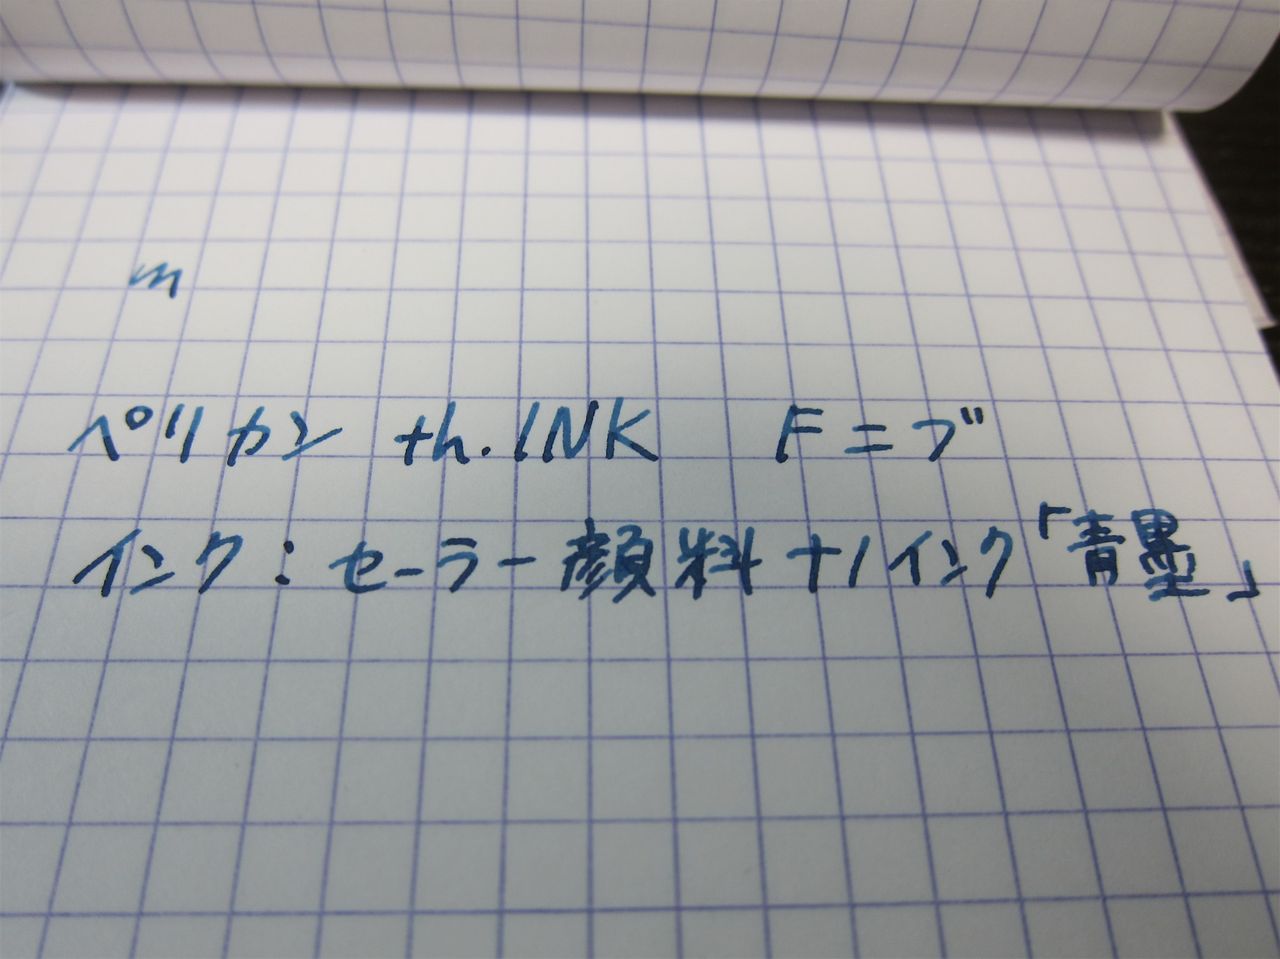 ペリカン th.INK Fニブ
インク:セーラー顔料ナノインク「青墨」